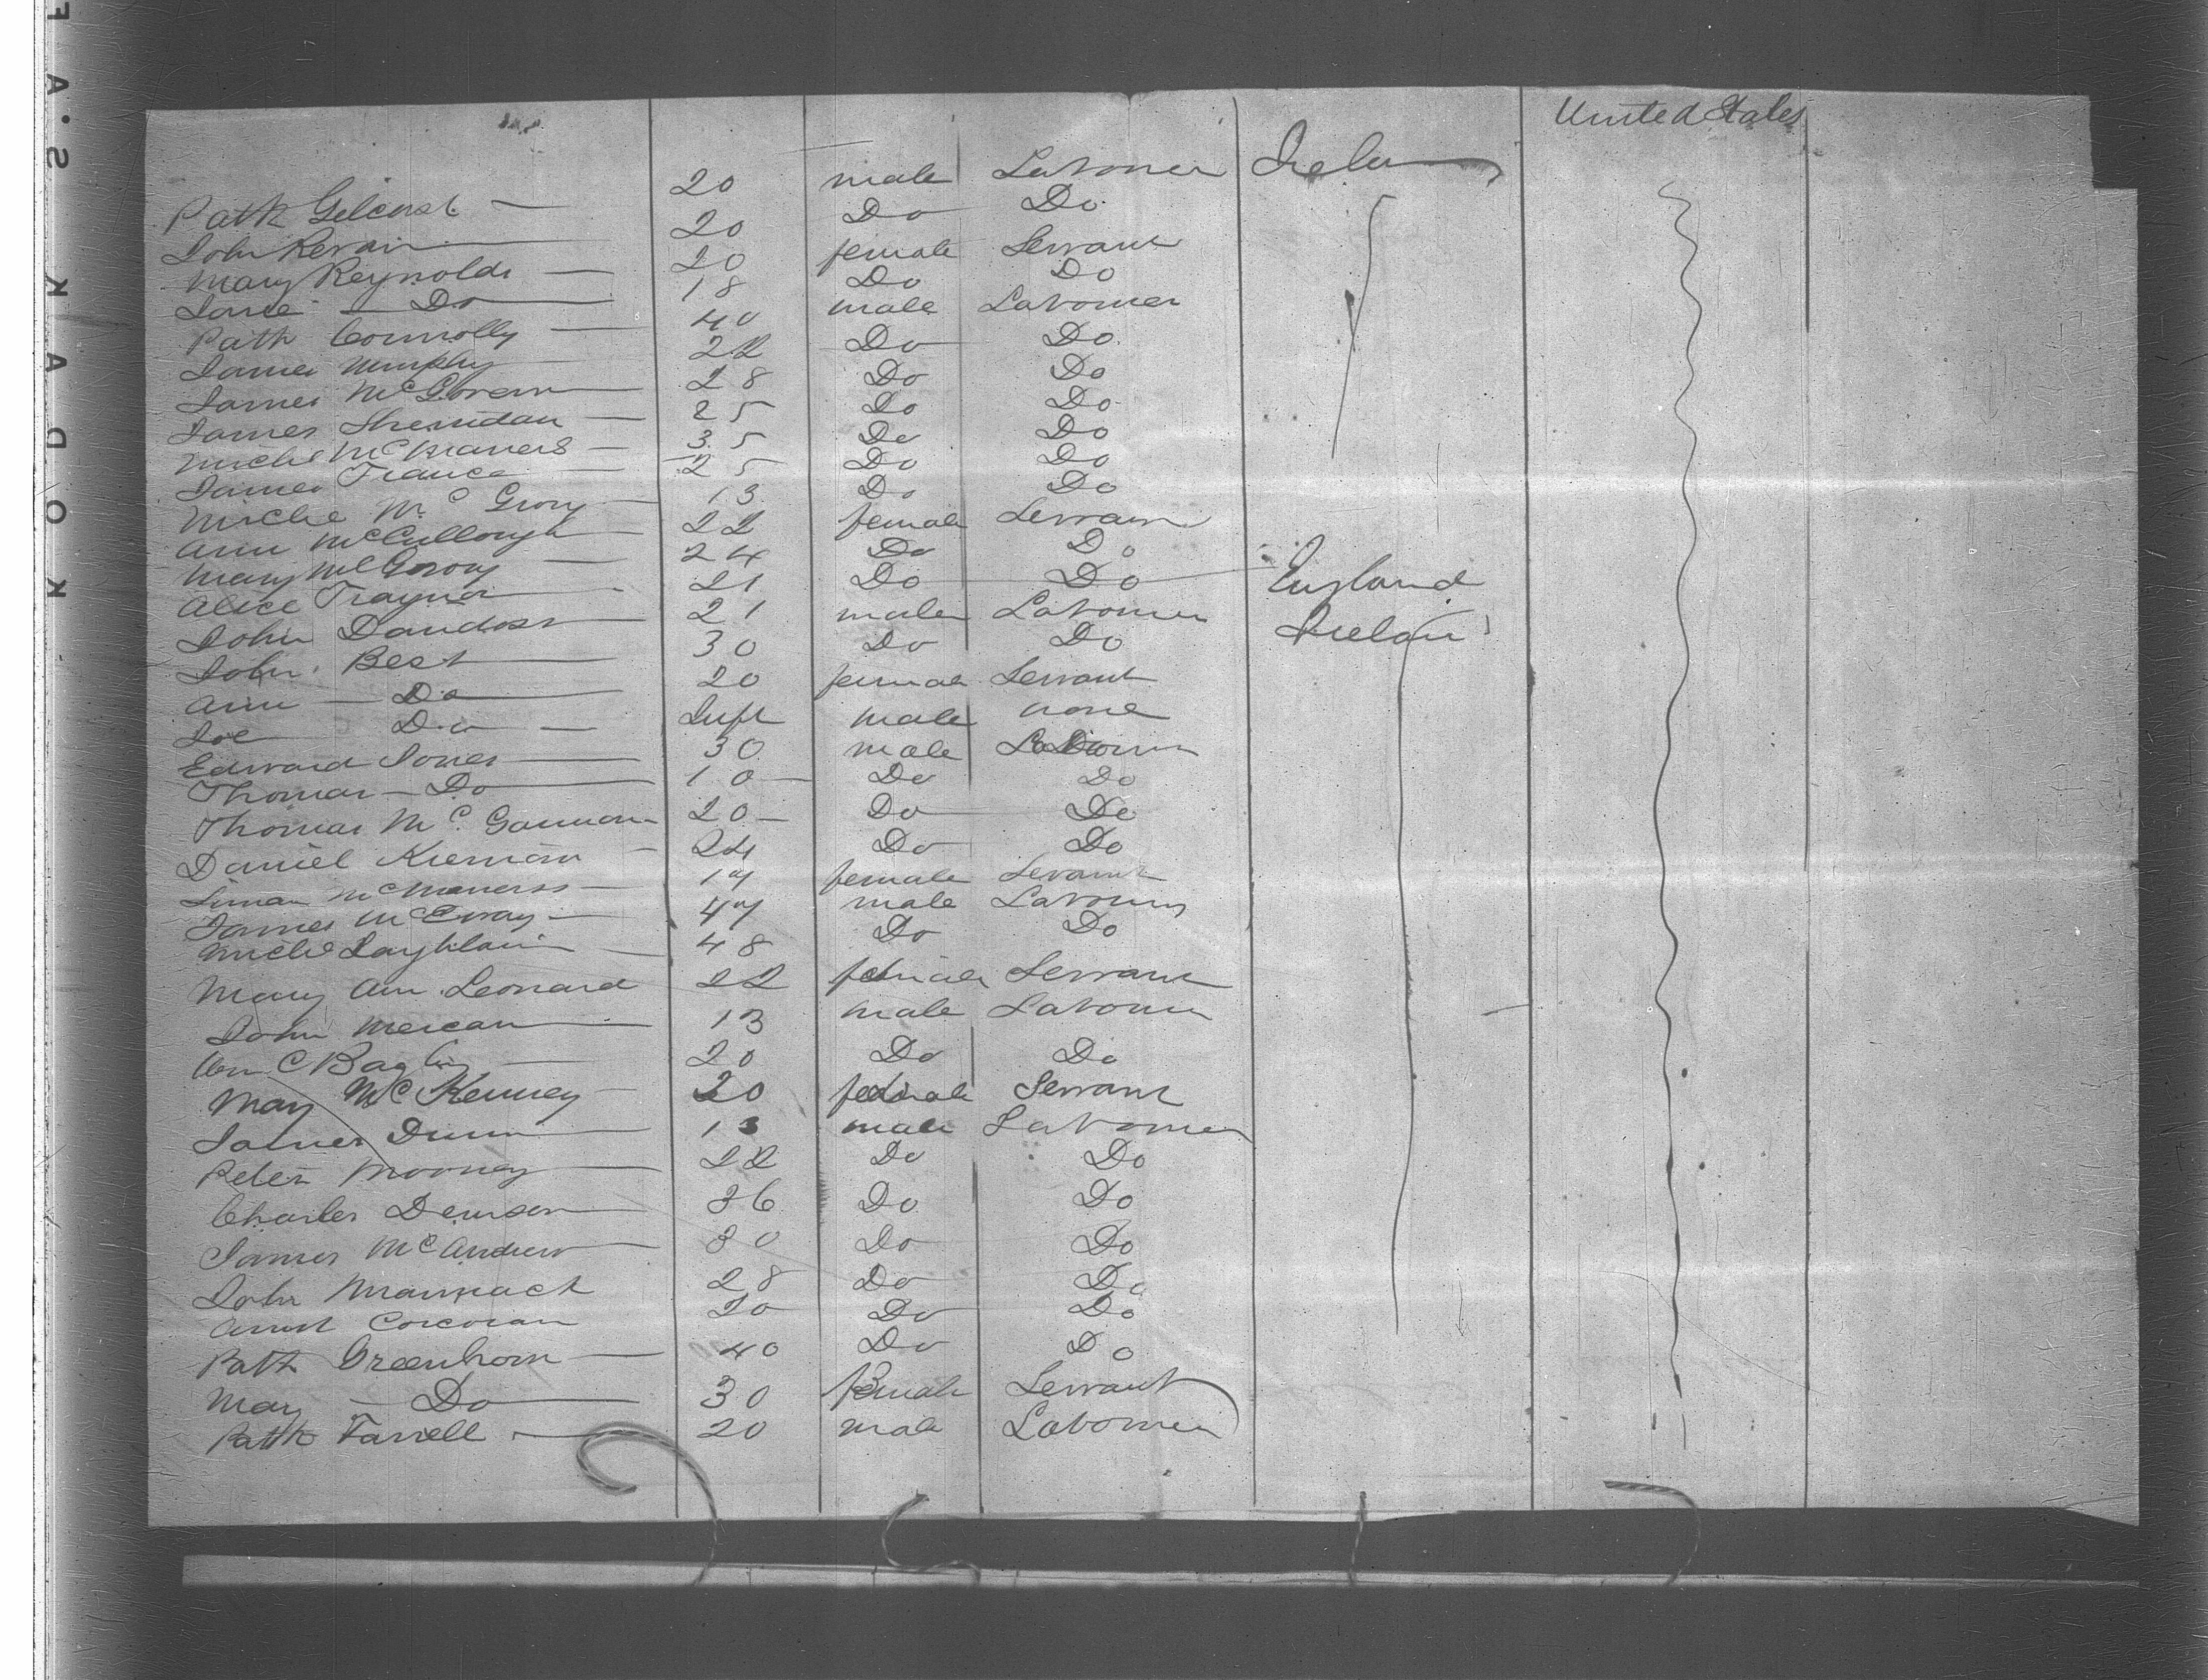 United States
Path Gilcrist 20 male Labourer Irelan
John Kervin 20 Do Do
Mary Reynolds 20 female Servant
Jane Do 18 Do Do
Path Connolly 40 male Labourer
James Murphy 22 Do Do
James McGovern 28 Do Do
James Sheridan 25 Do Do
Michl McManers 35 Do Do
James Trance 25 Do Do
Michl Mc Grory 13 Do Do
Ann McCullough 22 female Servant
Mary McGrory 24 Do Do
Alice Traynor 21 Do Do England
John Davidson 21 male Labourer Irelan
John Best 30 Do Do
Ann Do 20 female Servant
Joe Do Inft male none
Edward Jones 30 male Labourer
Thomas Do 10 Do Do
Thomas Mc Gannon 20 Do Do
Daniel Kiernan 24 Do Do
McManerss 17 female Servant
James McEvoy 47 male Labourer
Michl Laughlain 48 Do Do
Mary Ann Leonard 22 female Servant
John Mercan 13 male Labourer
Wm C Bagley 20 Do Do
Mary McKenney 20 female Servant
James Dunn 13 male Labourer
Peter Mooney 22 Do Do
Charles Denison 36 Do Do
James McAndrew 30 Do Do
John 28 Do Do
Corcoran 20 Do Do
Path Greenhorn 40 Do Do
May Do 30 female Servant
Path Farrell 20 male Labourer
KODAK S.A F